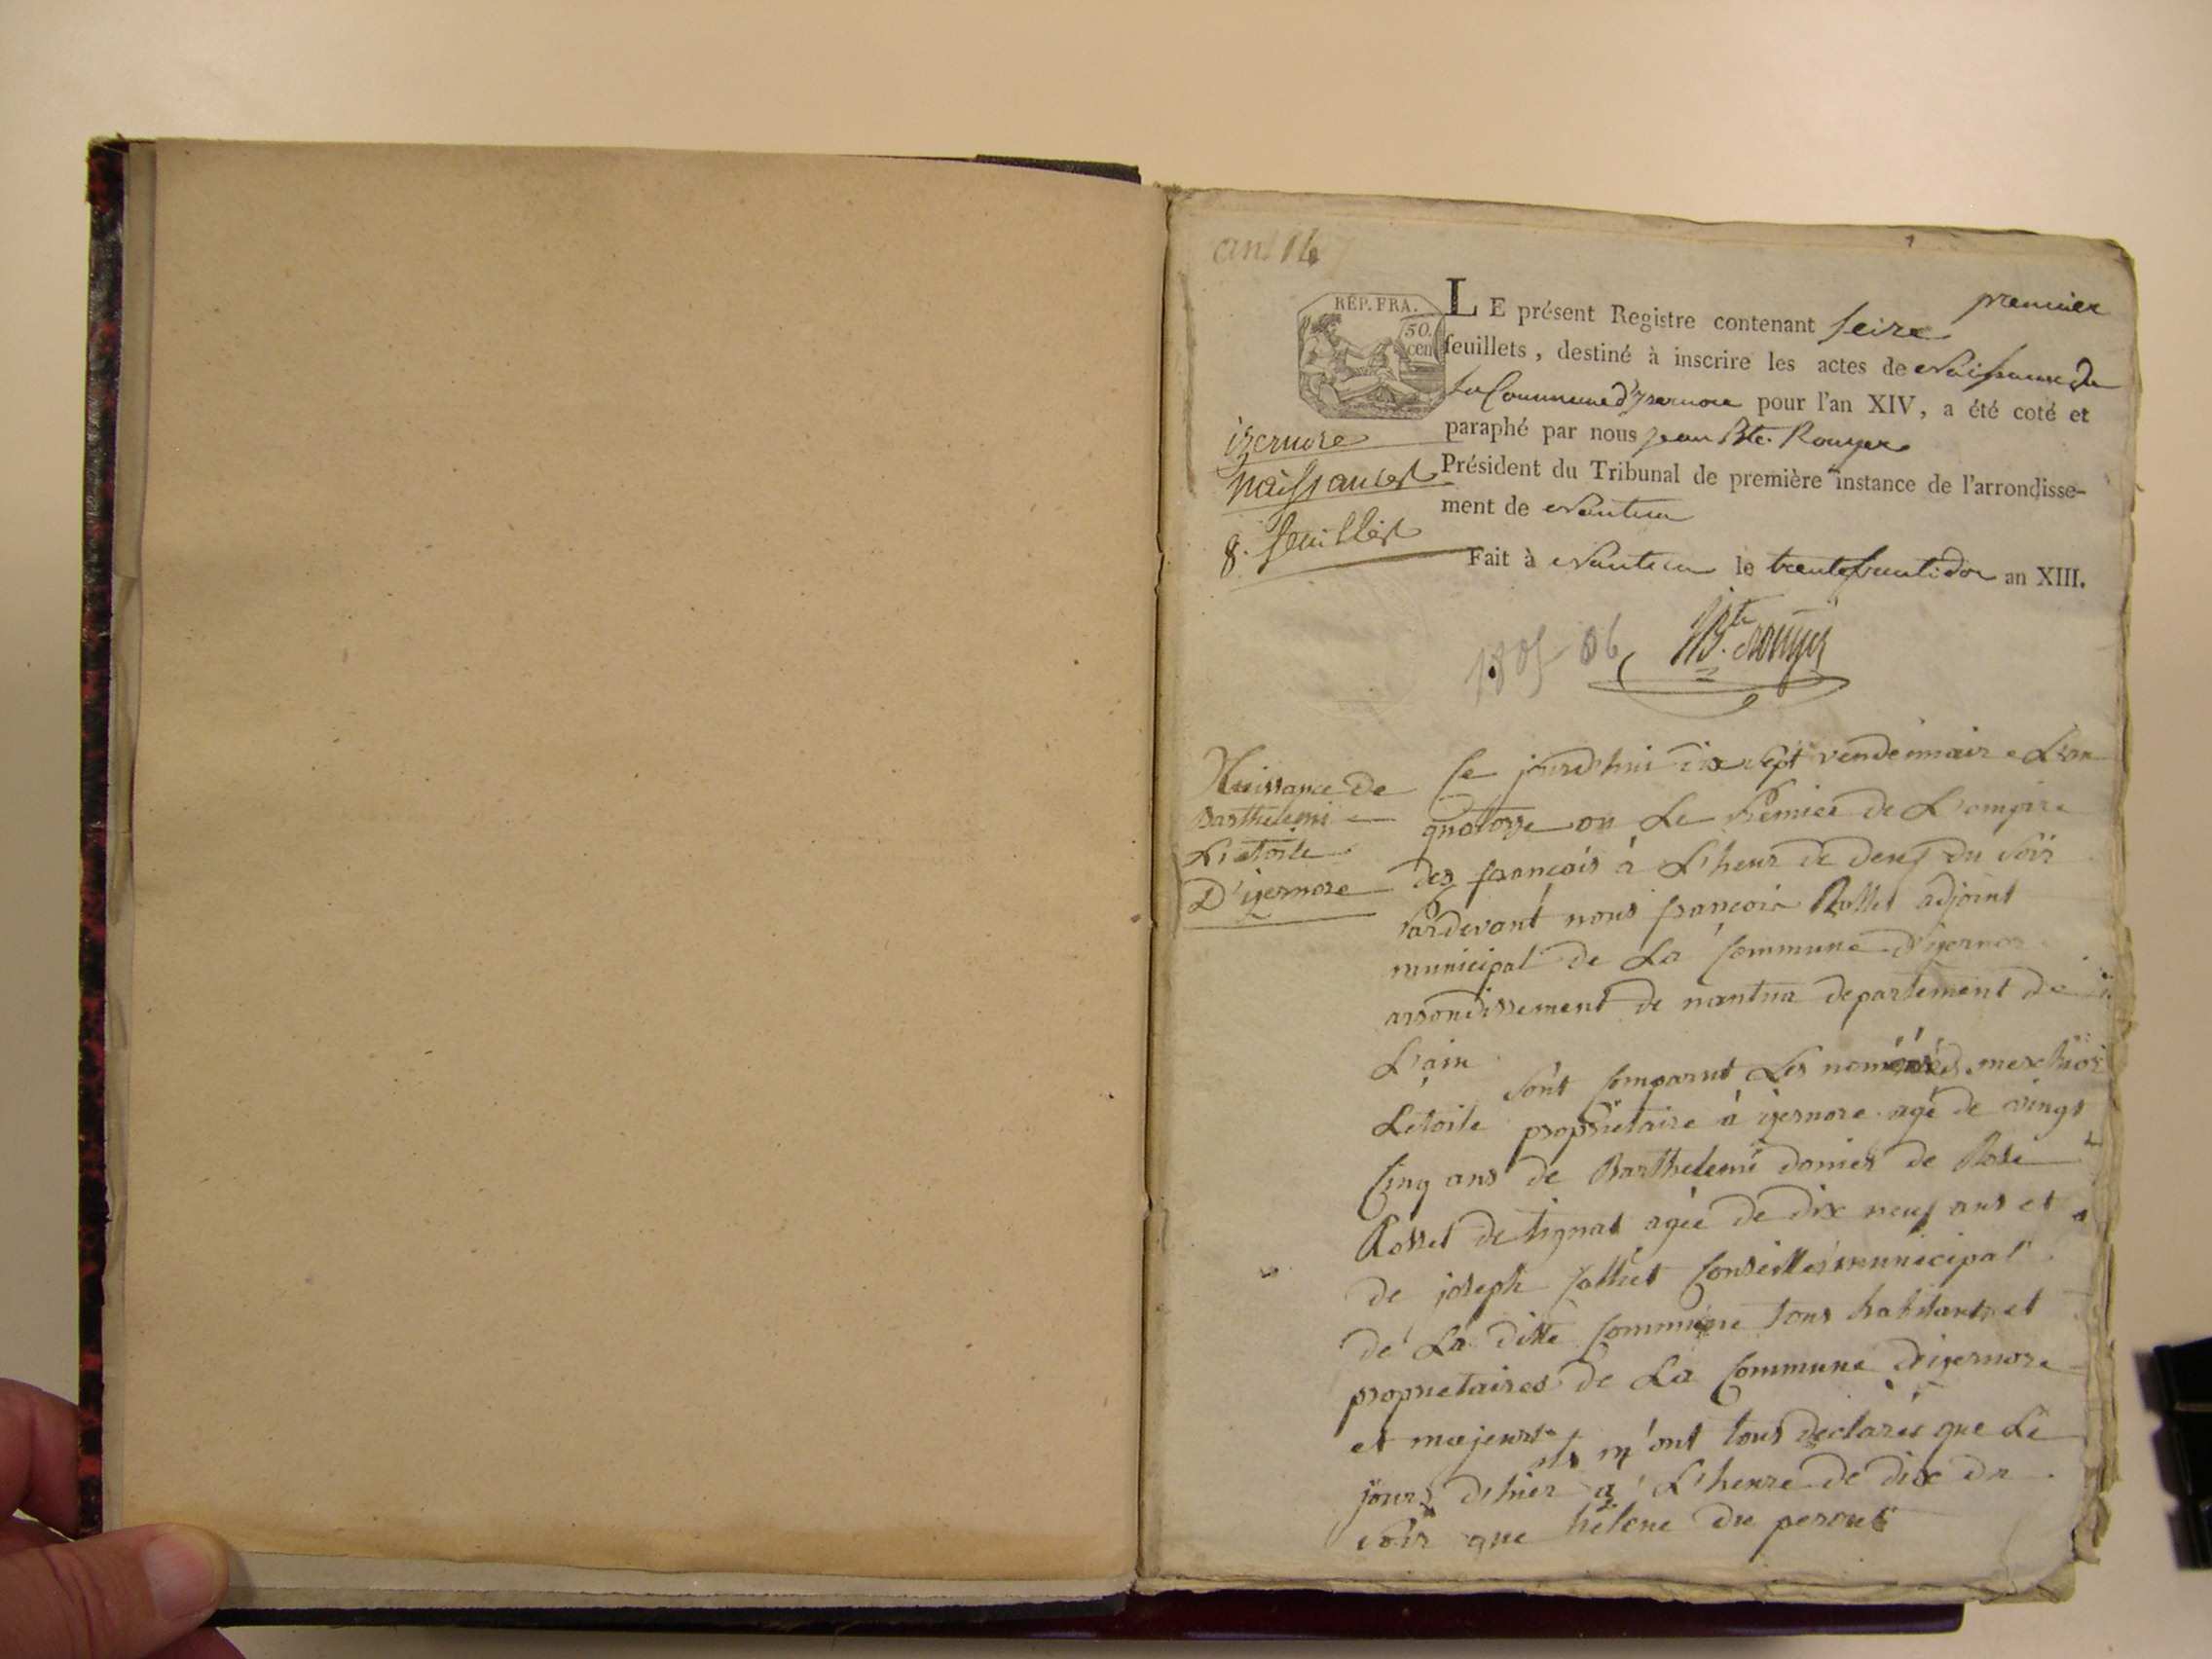 an 14
1
premier
RÉP. FRA.
50.
cen
LE présent Registre contenant seize
feuillets, destiné à inscrire les actes de Naissance de
la Commune d'izernore pour l'an XIV, a été coté et
paraphé par nous jean Bte. Rouyer
Président du Tribunal de première instance de l'arrondisse-
ment de Nantua
Fait à Nantua le trente fructidor an XIII.
izernore
naissances
8. feuillets
1805-06
JBte Rouyer
Naissance de
Barthelemi
Létoile
D'izernore
Ce jourd'hui dix sept vendemiaire L'an
quatorze ou Le Premier de L'empire
des francois à L'heur de deux du soir
Pardevant nous francois Rollet adjoint
municipal de La Commune D'izernore
arrondissement de nantua departement de
L'ain
Sont Comparut Les nommés merchior
Létoile proprietaire à izernore agé de vingt
Cinq ans de Barthelemi danier de Rose
Rosset de tignat agée de dix neuf ans et
de joseph Conseiller municipal
de La ditte Commune tous habitants et
proprietaires de La Commune D'izernore
et majeurs ils m'ont tous declarés que Le
jour D'hier a L'heure de dix du
soir que hélene du peroul